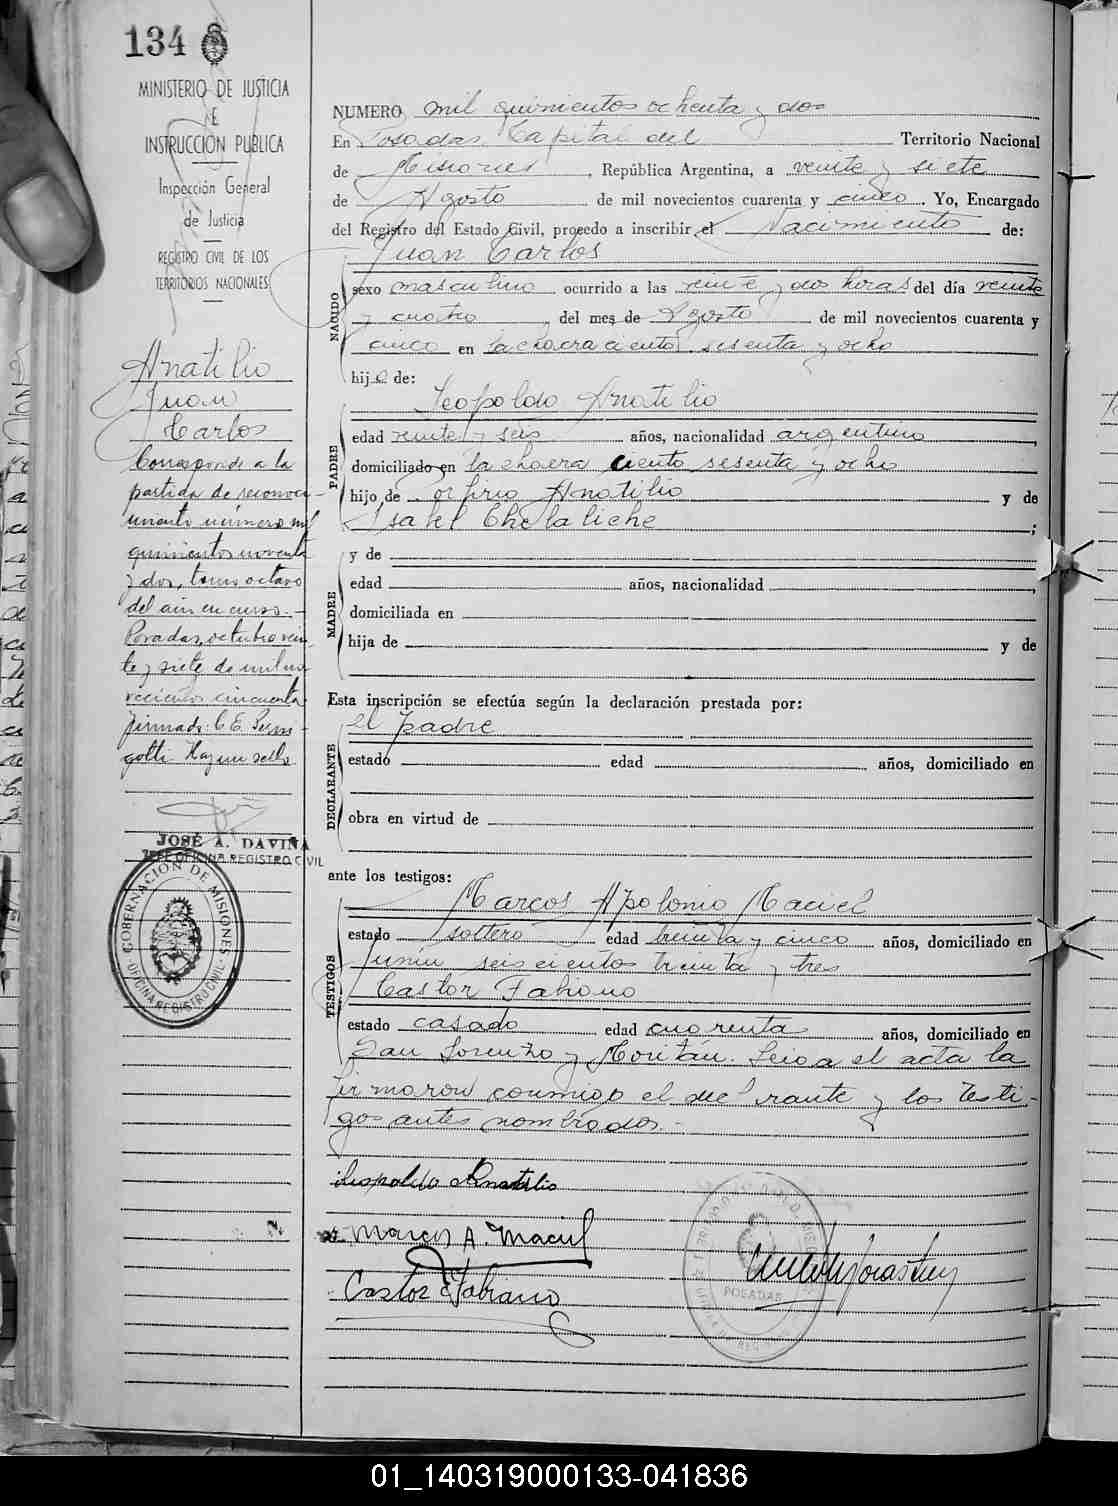 134
MINISTERIO DE JUSTICIA
E
INSTRUCCION PUBLICA
Inspección General
de Justicia
REGISTRO CIVIL DE LOS
TERRITORIOS NACIONALES
Anatilio
Juan
Carlos
Corresponde a la
partida de reconoci-
miento número mil
quinientos noventa
y dos, tomo octavo
del año en curso.-
Posadas, octubre vein-
te y siete de mil no-
vecientos cincuenta
firmado: C. E.
Hay un sello
JOSÉ A. DAVIÑA
JEFE OFICINA REGISTRO CIVIL
GOBERNACIÓN DE MISIONES
OFICINA REGISTRO CIVIL
NUMERO mil quinientos ochenta y dos
En Posadas Capital del Territorio Nacional
de Misiones, República Argentina, a veinte y siete
de Agosto de mil novecientos cuarenta y cinco. Yo, Encargado
del Registro del Estado Civil, procedo a inscribir el Nacimiento de:
Juan Carlos
NACIDO
sexo masculino ocurrido a las veinte y dos horas del día veinte
y cuatro del mes de Agosto de mil novecientos cuarenta y
cinco en la chacra ciento sesenta y ocho
hijo de:
Leopoldo Anatilio
PADRE
edad veinte y seis años, nacionalidad argentino,
domiciliado en la chacra ciento sesenta y ocho
hijo de Porfirio Anatilio y de
Isabel Chelaliche;
MADRE
y de
edad años, nacionalidad,
domiciliada en
hija de y de
Esta inscripción se efectúa según la declaración prestada por:
el padre
DECLARANTE
estado edad años, domiciliado en
obra en virtud de
ante los testigos:
Marcos Apolonio Maciel
TESTIGOS
estado soltero edad treinta y cinco años, domiciliado en
Junin seiscientos treinta y tres
Castor Fabiano
estado casado edad cuarenta años, domiciliado en
San Lorenzo y Moritán. Leida el acta la
firmaron conmigo el declarante y los testi-
gos antes nombrados.-
Leopoldo Anatilio
Marcos A. Maciel
Castor Fabiano
POSADAS
01_140319000133-041836